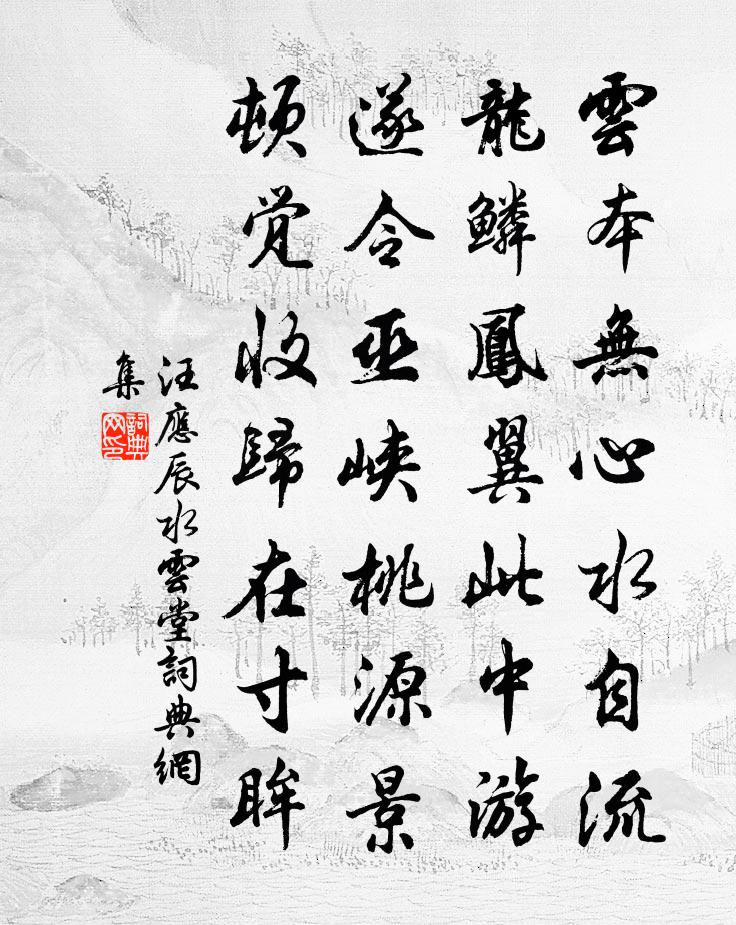 雲本無心水自流
龍鱗鳳翼此中游
遂令巫峽桃源景
頓覚收歸在寸眸
汪應辰水雲堂詞典網
集
詞典网印